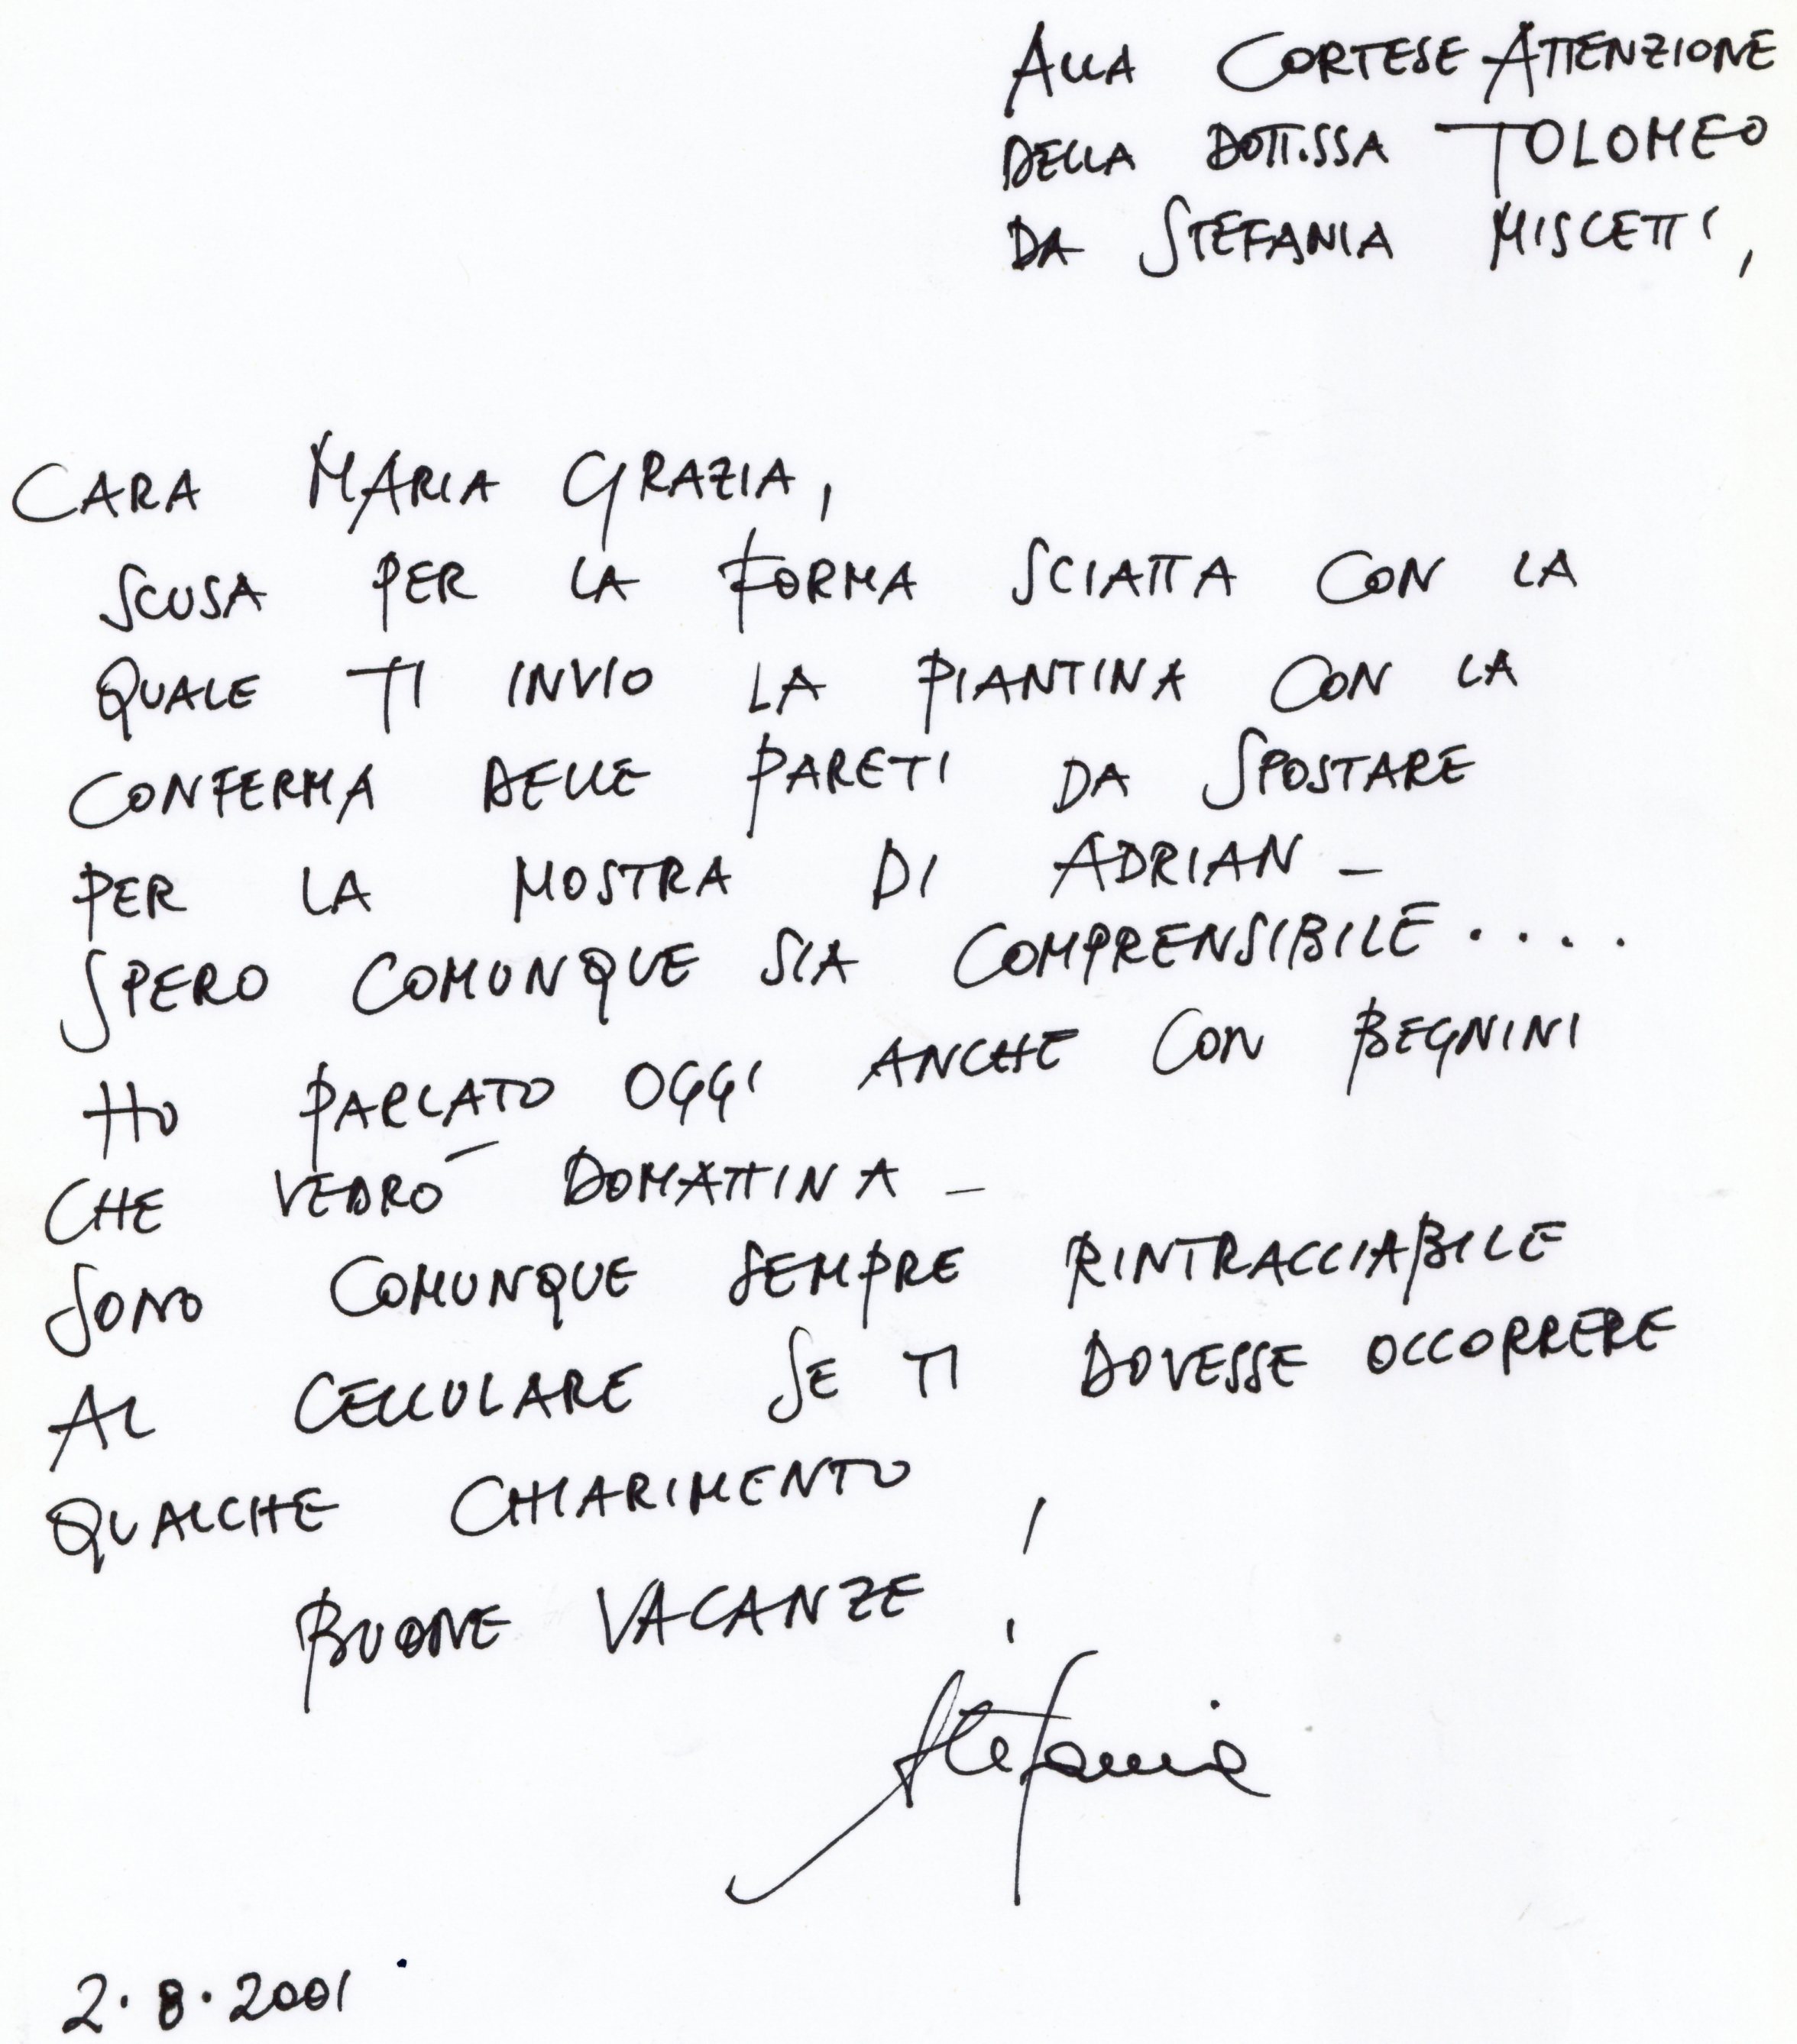 ALLA CORTESE ATTENZIONE
DELLA DOTT.SSA TOLOMEO
DA STEFANIA MISCETTI,
CARA MARIA GRAZIA,
SCUSA PER LA FORMA SCIATTA CON LA
QUALE TI INVIO LA PIANTINA CON LA
CONFERMA DELLE PARETI DA SPOSTARE
PER LA MOSTRA DI ADRIAN –
SPERO COMUNQUE SIA COMPRENSIBILE ....
HO PARLATO OGGI ANCHE CON BEGNINI
CHE VEDRÒ DOMATTINA –
SONO COMUNQUE SEMPRE RINTRACCIABILE
AL CELLULARE SE TI DOVESSE OCCORRERE
QUALCHE CHIARIMENTO
BUONE VACANZE !
Stefania
2.8.2001